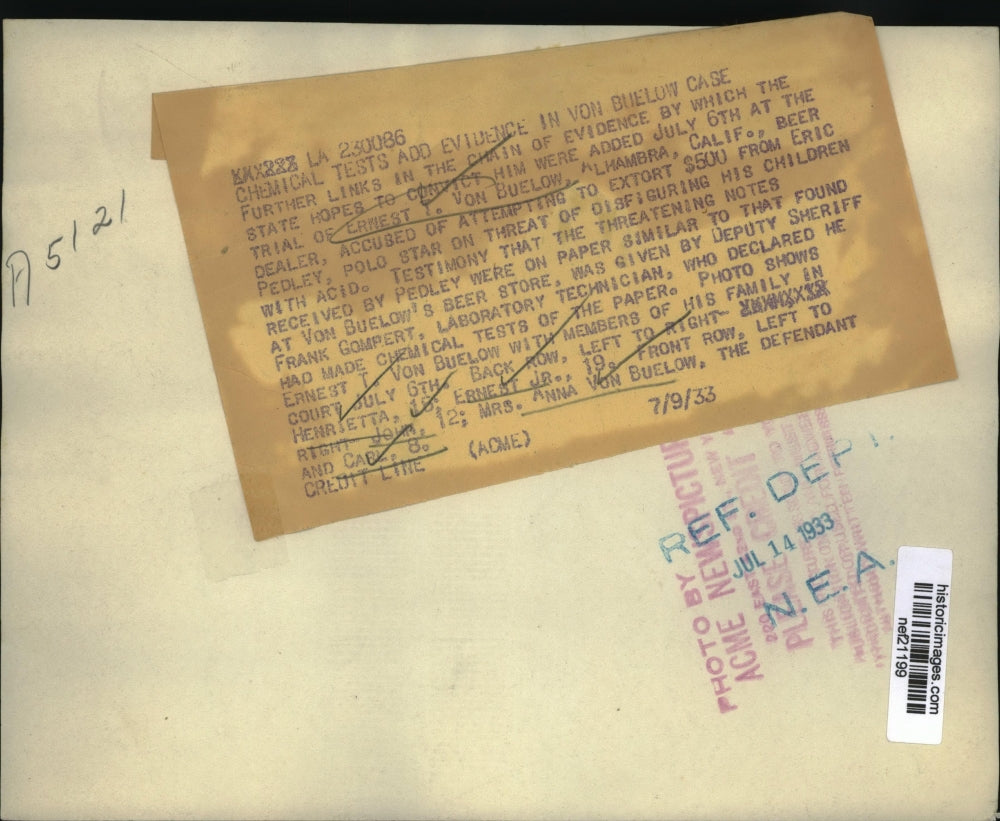 XXXXXX LA 230086
CHEMICAL TESTS ADD EVIDENCE IN VON BUELOW CASE
FURTHER LINKS IN THE CHAIN OF EVIDENCE BY WHICH THE
STATE HOPES TO CONVICT HIM WERE ADDED JULY 6TH AT THE
TRIAL OF ERNEST T. VON BUELOW, ALHAMBRA, CALIF., BEER
DEALER, ACCUSED OF ATTEMPTING TO EXTORT $500 FROM ERIC
PEDLEY, POLO STAR ON THREAT OF DISFIGURING HIS CHILDREN
WITH ACID. TESTIMONY THAT THE THREATENING NOTES
RECEIVED BY PEDLEY WERE ON PAPER SIMILAR TO THAT FOUND
AT VON BUELOW'S BEER STORE, WAS GIVEN BY DEPUTY SHERIFF
FRANK GOMPERT, LABORATORY TECHNICIAN, WHO DECLARED HE
HAD MADE CHEMICAL TESTS OF THE PAPER. PHOTO SHOWS
ERNEST T. VON BUELOW WITH MEMBERS OF HIS FAMILY IN
COURT JULY 6TH. BACK ROW, LEFT TO RIGHT-
HENRIETTA, ERNEST JR., 19. FRONT ROW, LEFT TO
RIGHT JOHN, 12; MRS. ANNA VON BUELOW, THE DEFENDANT
AND CARL, 8.
CREDIT LINE (ACME) 7/9/33
A5121
REF. DEPT.
JUL 14 1933
N. E. A.
PHOTO BY
ACME NEWSPICTURES
PLEASE CREDIT
historicimages.com
nef21199